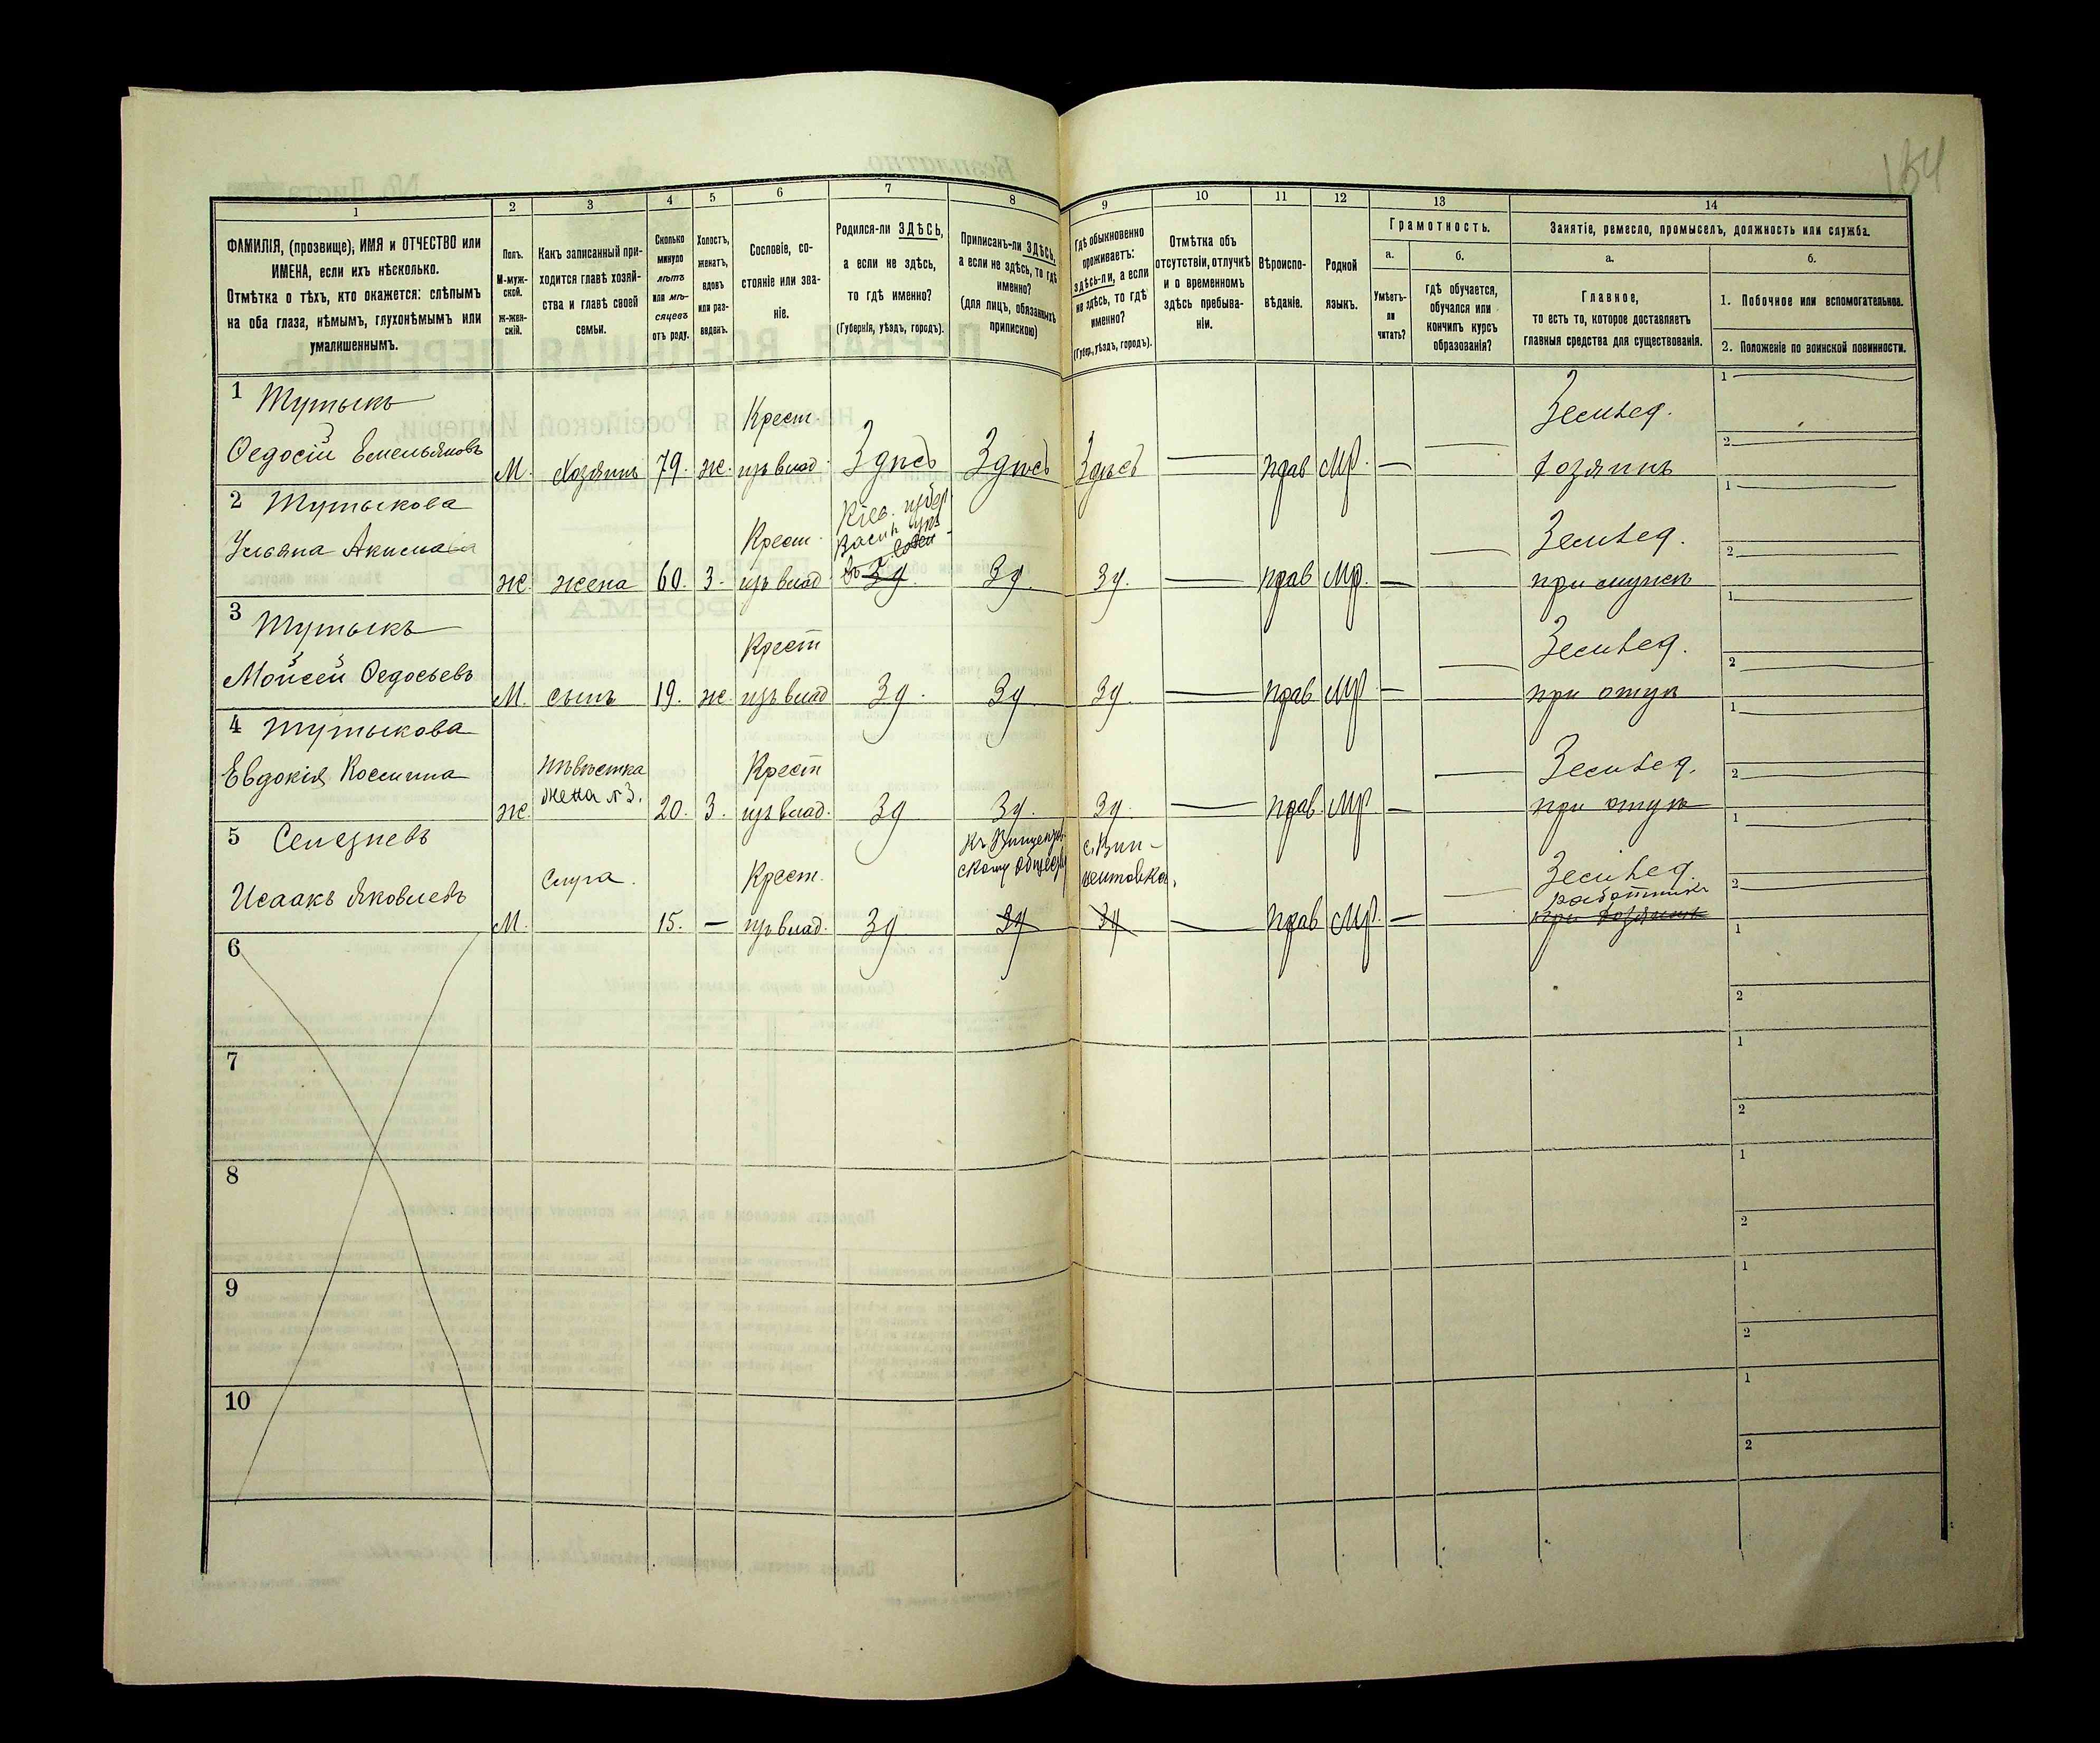 154
1
2
3
4
5
6
7
8
9
10
11
12
13
14
ФАМИЛІЯ, (прозвище), ИМЯ и ОТЧЕСТВО или
ИМЕНА, если ихъ нѣсколько.
Отмѣтка о тѣхъ, кто окажется: слѣпымъ
на оба глаза, нѣмымъ, глухонѣмымъ или
умалишеннымъ.
Полъ.
М-муж-
ской.
Ж-жен-
скій.
Какъ записанный при-
ходится главѣ хозяй-
ства и главѣ своей
семьи.
Сколько
минуло
лѣтъ
или мѣ-
сяцевъ
отъ роду.
Холостъ,
женатъ,
вдовъ
или раз-
веденъ.
Сословіе, со-
стояніе или зва-
ніе.
Родился-ли ЗДѢСЬ,
а если не здѣсь,
то гдѣ именно?
(Губернія, уѣздъ, городъ).
Приписанъ-ли ЗДѢСЬ,
а если не здѣсь, то гдѣ
именно?
(для лицъ, обязанныхъ
припискою)
Гдѣ обыкновенно
проживаетъ:
здѣсь-ли, а если
не здѣсь, то гдѣ
именно?
(Губер., уѣздъ, городъ).
Отмѣтка объ
отсутствіи, отлучкѣ
и о временномъ
здѣсь пребыва-
ніи.
Вѣроиспо-
вѣданіе.
Родной
языкъ.
Грамотность.
а.
Умѣетъ-
ли
читать?
б.
гдѣ обучается,
обучался или
кончилъ курсъ
образованія?
Занятіе, ремесло, промыселъ, должность или служба.
а.
Главное,
то есть то, которое доставляетъ
главныя средства для существованія.
б.
1. Побочное или вспомогательное.
2. Положеніе по воинской повинности.
1 Тутыкъ
Ѳедосій Емельяновъ
М. Хозяинъ 79. ж.
Крест.
изъ влад.
Здѣсь Здѣсь Здѣсь — прав Мр. —
Земвед.
хозяинъ
1
2
2 Тутыкова
Ульяна Акимова
ж. жена 60. З.
Крест.
изъ влад.
Кіев. губер.
Зд. Зд. Зд. — прав Мр. —
Земвед.
при мужѣ
1
2
3 Тутыкъ
Мойсей Ѳедосьевъ
М. сынъ 19. ж.
Крест
изъ влад
Зд. Зд Зд. — прав Мр —
Земвед.
при отцѣ
1
2
4 Тутыкова
Евдокія Космина
ж.
Невѣстка
жена №3.
20. З.
Крест
изъ влад.
Зд Зд. Зд. — прав. Мр —
Земвед.
при отцѣ
1
2
5 Селезневъ
Исаакъ Яковлевъ
М.
Слуга.
15. —
Крест.
изъ влад.
Зд
скому обществу
Зд
Зд
— прав Мр. —
Земвед.
работникъ
при хозяинѣ
1
2
6
1
2
7
1
2
8
1
2
9
1
2
10
1
2